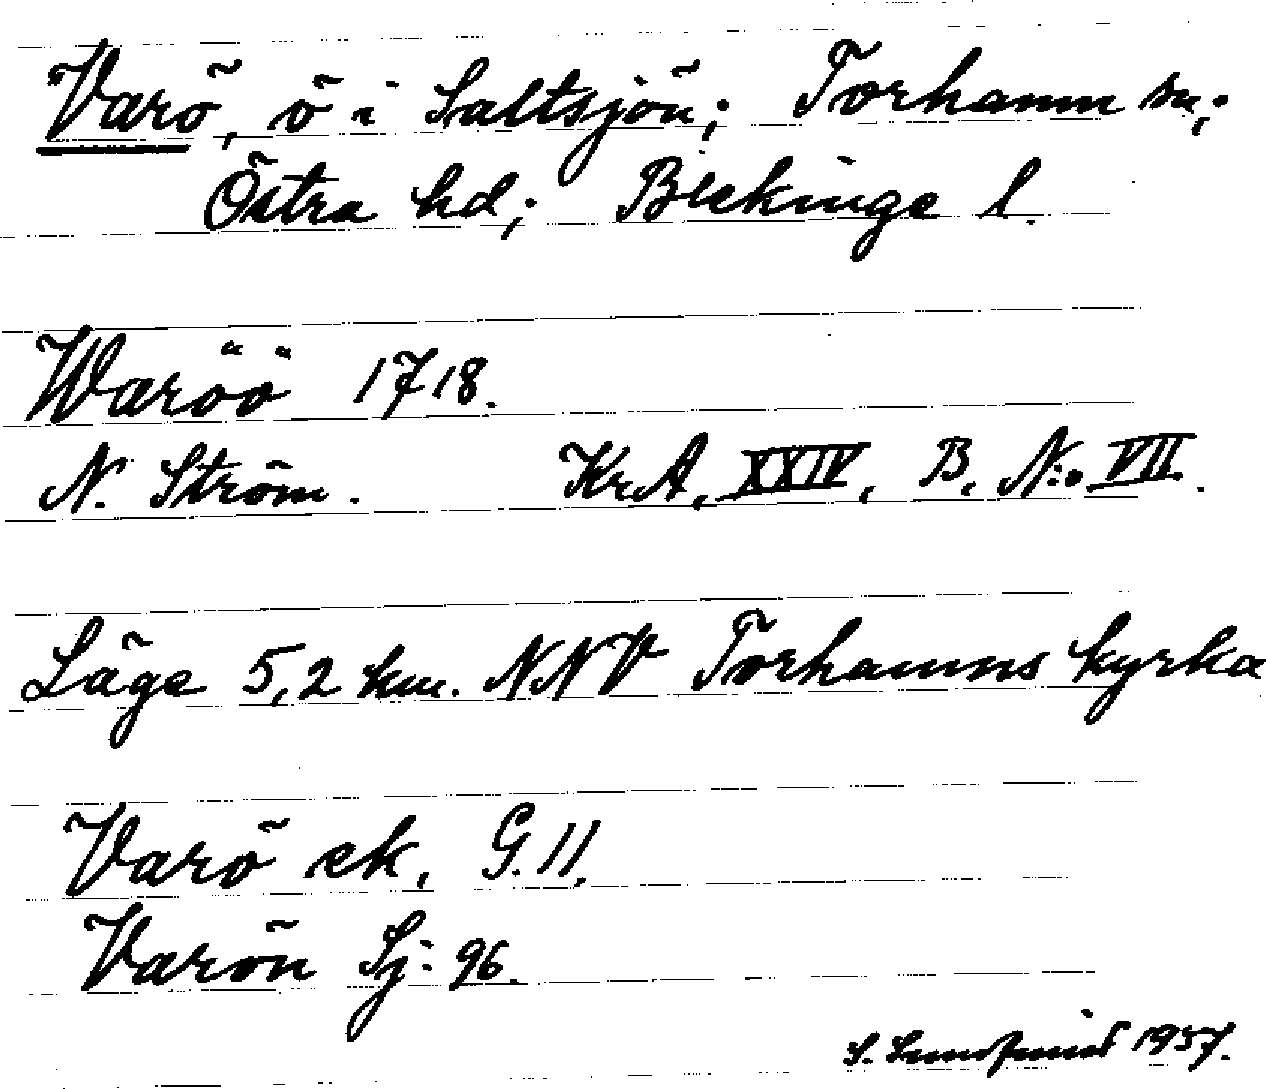 Varö, ö i Saltsjön; Torhamn sn;
Östra hd; Blekinge l.
Waröö 1718.
N. Ström. KrA, XXIV, B, N:o VII.
Läge 5,2 km. NNV Torhamns kyrka
Varö ek, G. 11.
Varön Sj: 96.
S. 1937.